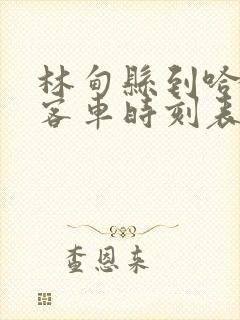 林甸縣到哈
客車時刻表
查恩来